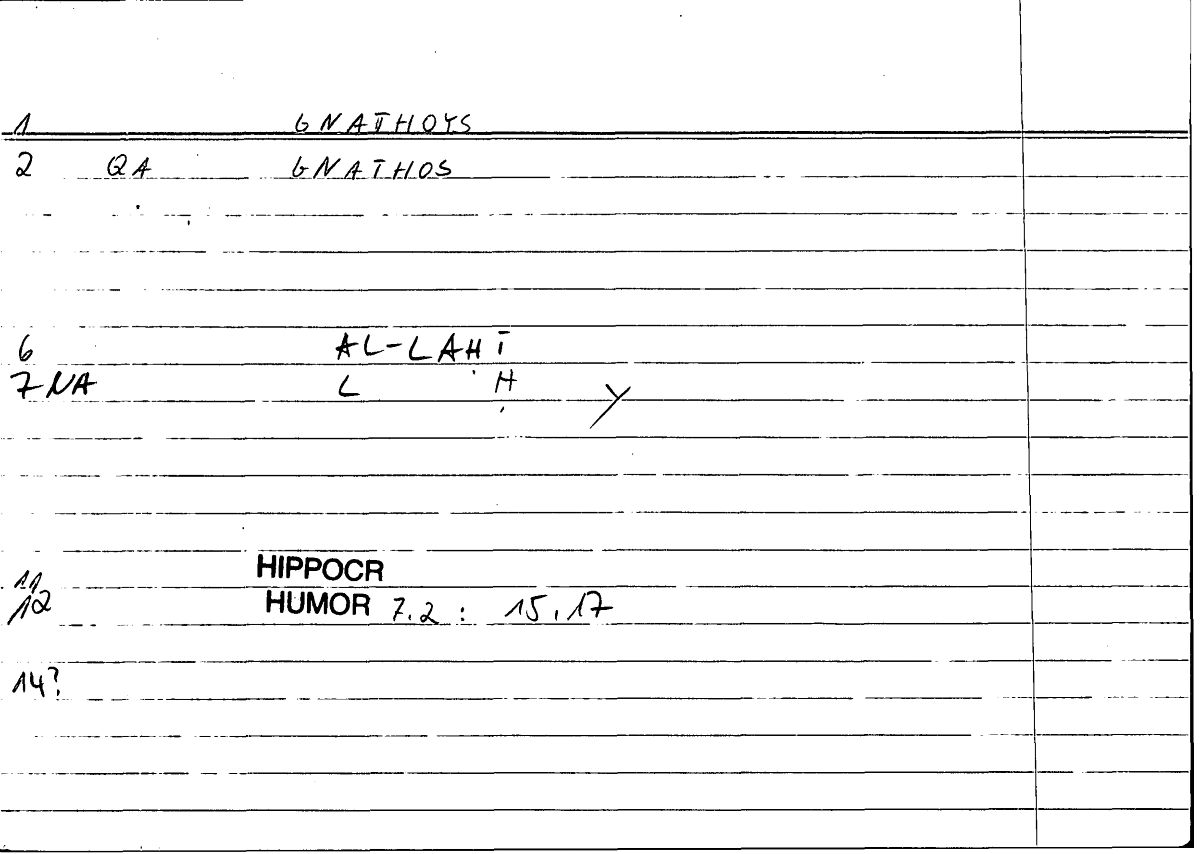 1 GNATHOYS
2 QA GNATHOS
6 AL-LAHȲ
7 NA L Ḥ Y
11 HIPPOCR
12 HUMOR 7.2 : 15,17
14?